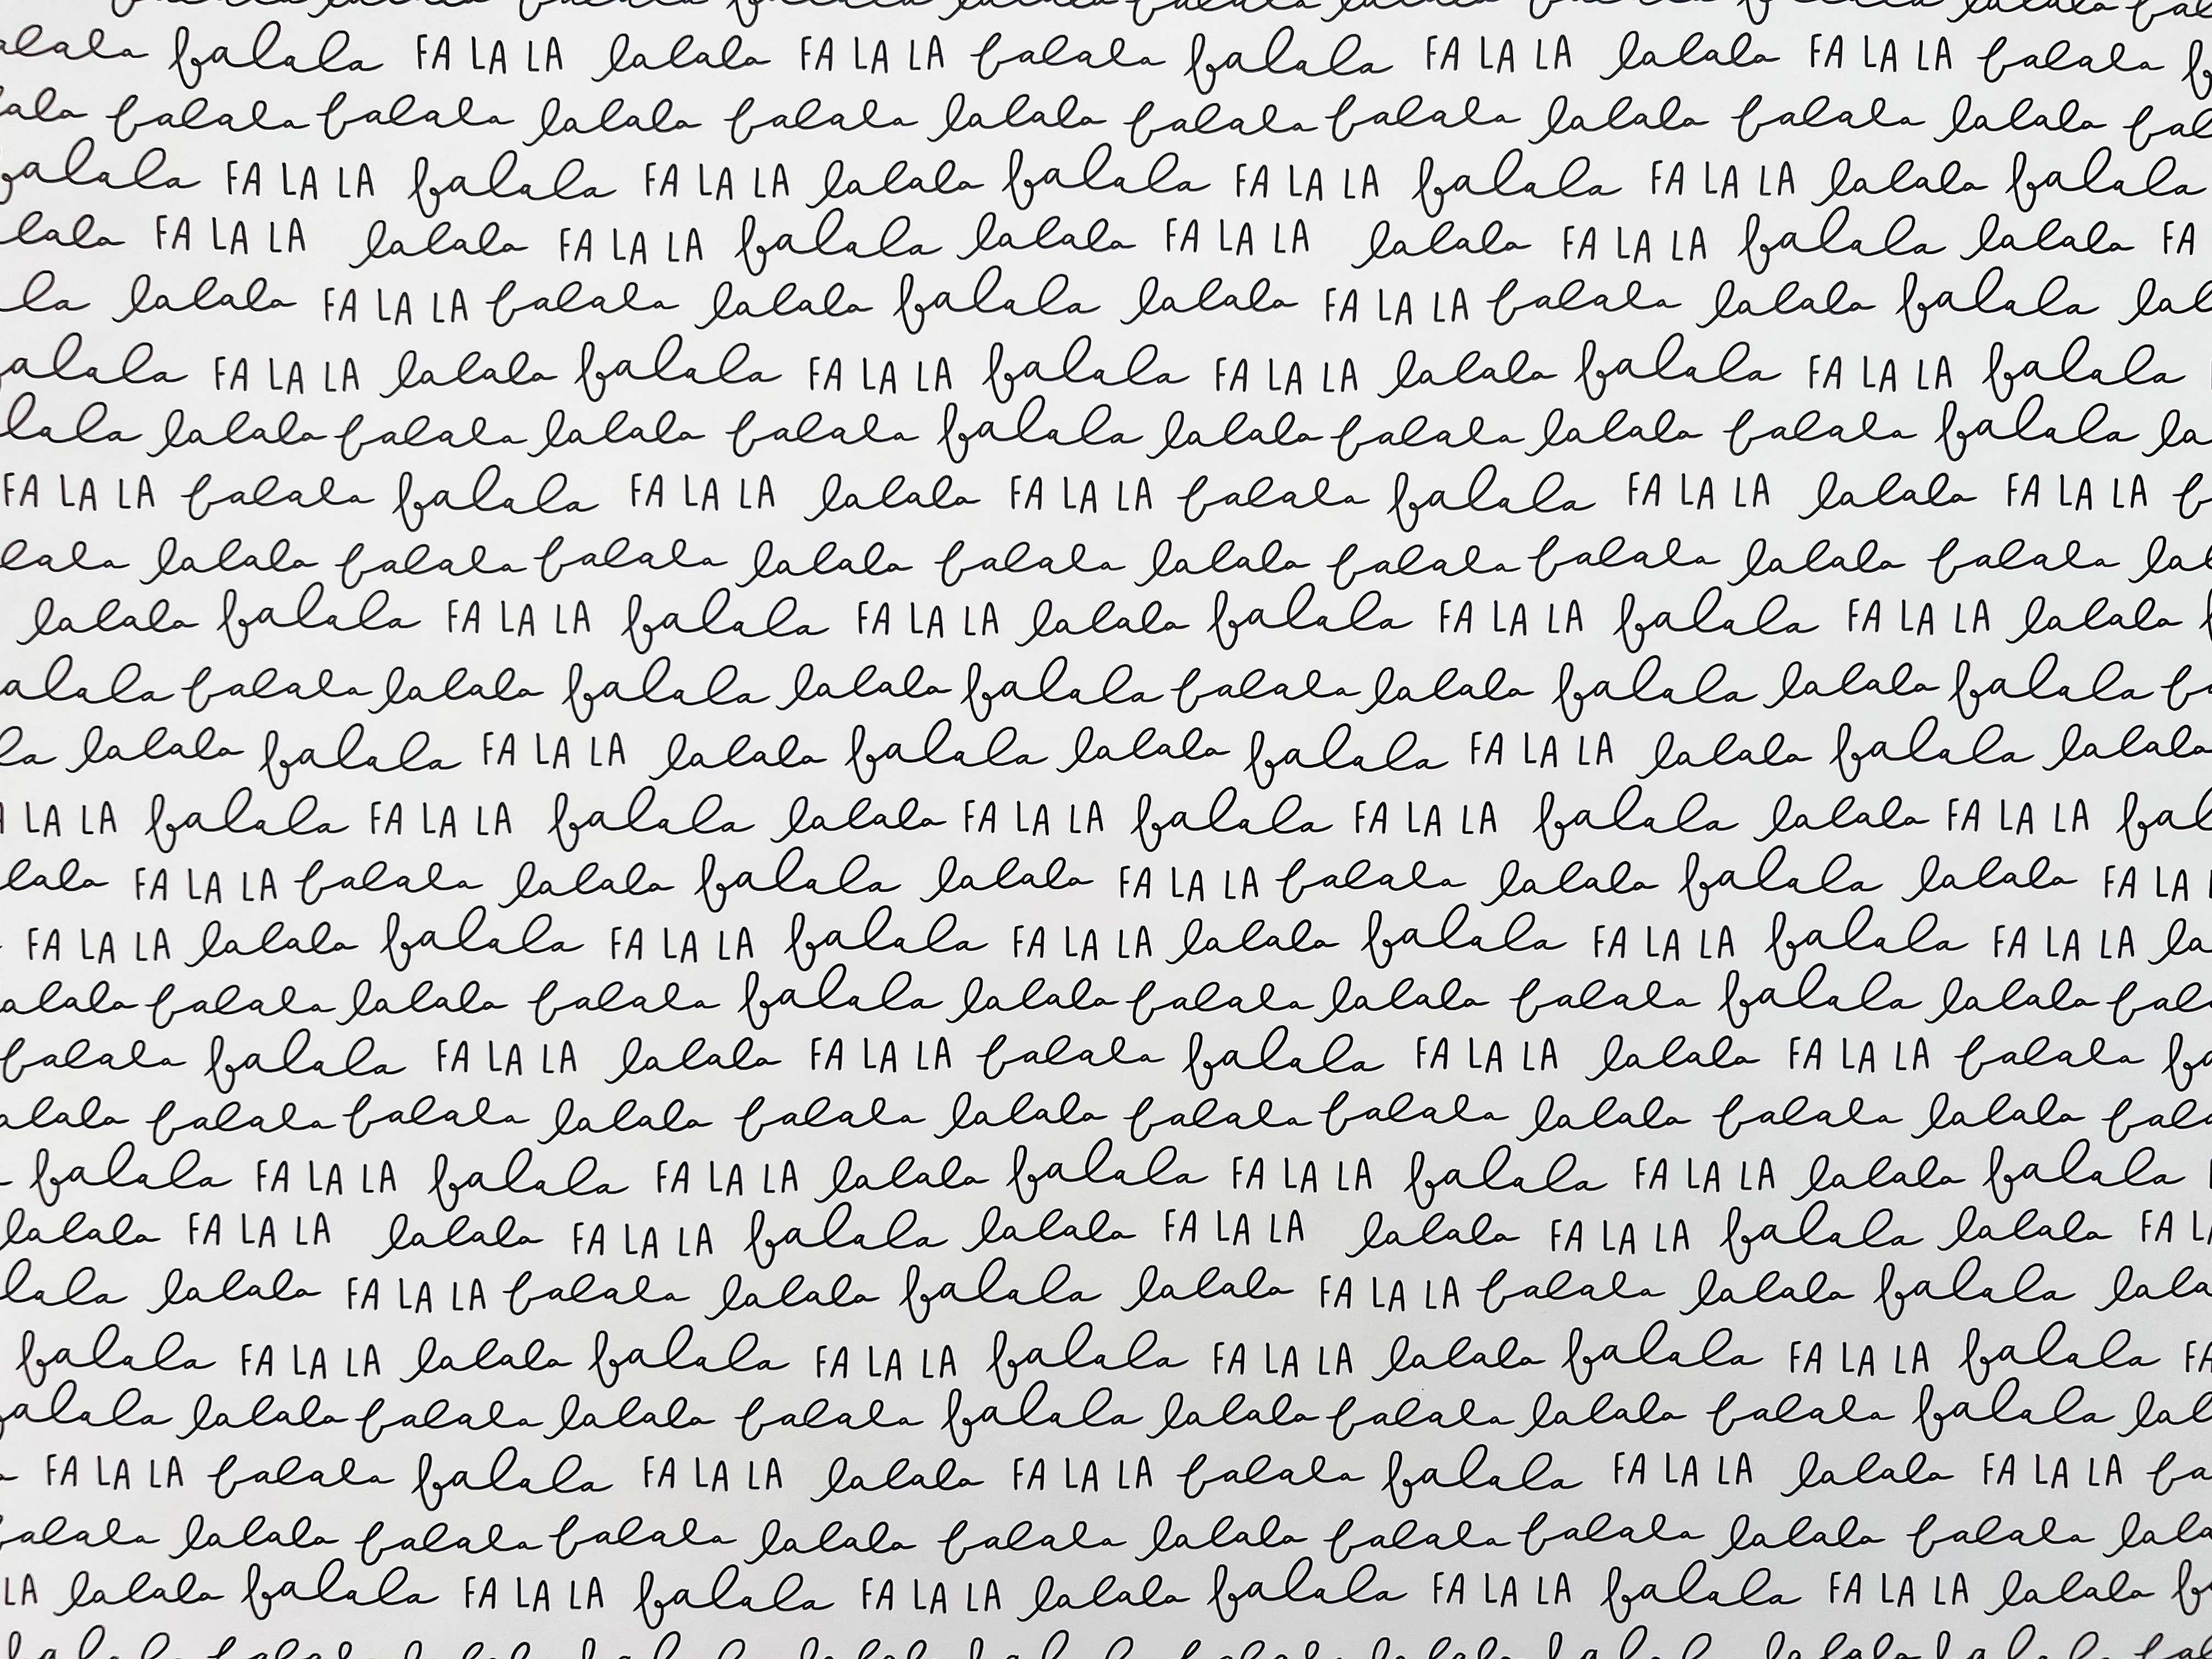 falala FA LA LA lalala FA LA LA falala falala FA LA LA lalala FA LA LA falala
falala falala lalala falala lalala falala falala lalala falala lalala
falala FA LA LA falala FA LA LA lalala falala FA LA LA falala FA LA LA lalala falala
FA LA LA lalala FA LA LA falala lalala FA LA LA lalala FA LA LA falala lalala FA
lalala FA LA LA falala lalala falala lalala FA LA LA falala lalala falala
FA LA LA lalala falala FA LA LA falala FA LA LA lalala falala FA LA LA falala
lalala falala lalala falala falala lalala falala lalala falala falala
FA LA LA falala falala FA LA LA lalala FA LA LA falala falala FA LA LA lalala FA LA LA
lalala falala falala lalala falala lalala falala falala lalala falala
lalala falala FA LA LA falala FA LA LA lalala falala FA LA LA falala FA LA LA lalala
falala lalala falala lalala falala falala lalala falala lalala falala
lalala falala FA LA LA lalala falala lalala falala FA LA LA lalala falala lalala
LA LA falala FA LA LA falala lalala FA LA LA falala FA LA LA falala lalala FA LA LA
FA LA LA falala lalala falala lalala FA LA LA falala lalala falala lalala FA LA
FA LA LA lalala falala FA LA LA falala FA LA LA lalala falala FA LA LA falala FA LA LA
falala lalala falala falala lalala falala lalala falala falala lalala
falala falala FA LA LA lalala FA LA LA falala falala FA LA LA lalala FA LA LA falala
falala falala lalala falala lalala falala falala lalala falala lalala
falala FA LA LA falala FA LA LA lalala falala FA LA LA falala FA LA LA lalala falala
lalala FA LA LA lalala FA LA LA falala lalala FA LA LA lalala FA LA LA falala lalala FA
lalala FA LA LA falala lalala falala lalala FA LA LA falala lalala falala
falala FA LA LA lalala falala FA LA LA falala FA LA LA lalala falala FA LA LA falala
lalala falala lalala falala falala lalala falala lalala falala falala
FA LA LA falala falala FA LA LA lalala FA LA LA falala falala FA LA LA lalala FA LA LA
lalala falala falala lalala falala lalala falala falala lalala falala
LA lalala falala FA LA LA falala FA LA LA lalala falala FA LA LA falala FA LA LA lalala